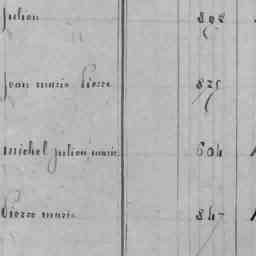 Julien 892
Jean marie Pierre 825
Michel Julien marie 604
Pierre marie 847